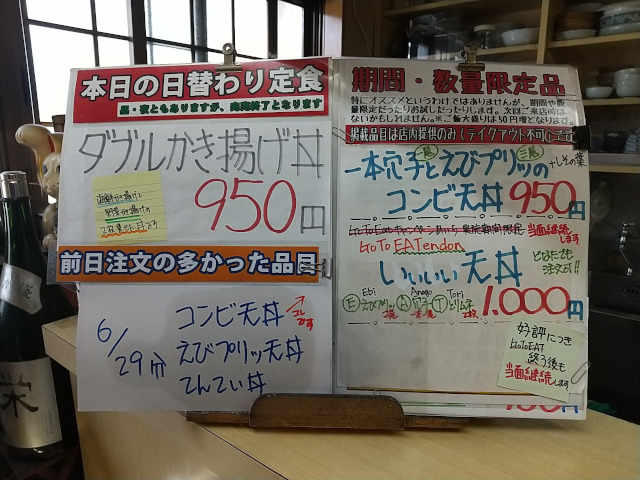 本日の日替わり定食
昼・夜ともありますが、売切終了となります
ダブルかき揚げ丼
海鮮かき揚げと
野菜かき揚げの
2枚乗せた丼です
950円
前日注文の多かった品目
6/29分
コンビ天丼
えびプリッ天丼
てんてい丼
期間・数量限定品
特にオススメというわけではありませんが、期間や数
量限定だったりお試しだったりします。次回ご来店時は
ないかもしれません。※ご飯大盛りは50円増となります
掲載品目は店内提供のみ(テイクアウト不可)
一本穴子とえびプリッの
+しその葉
コンビ天丼 950円
当面継続します
GoTo EATendon
いいいい天丼
どなたでも
注文可!!
Ebi Anago Tori
1,000円
好評につき
GoToEAT
終了後も
当面継続します